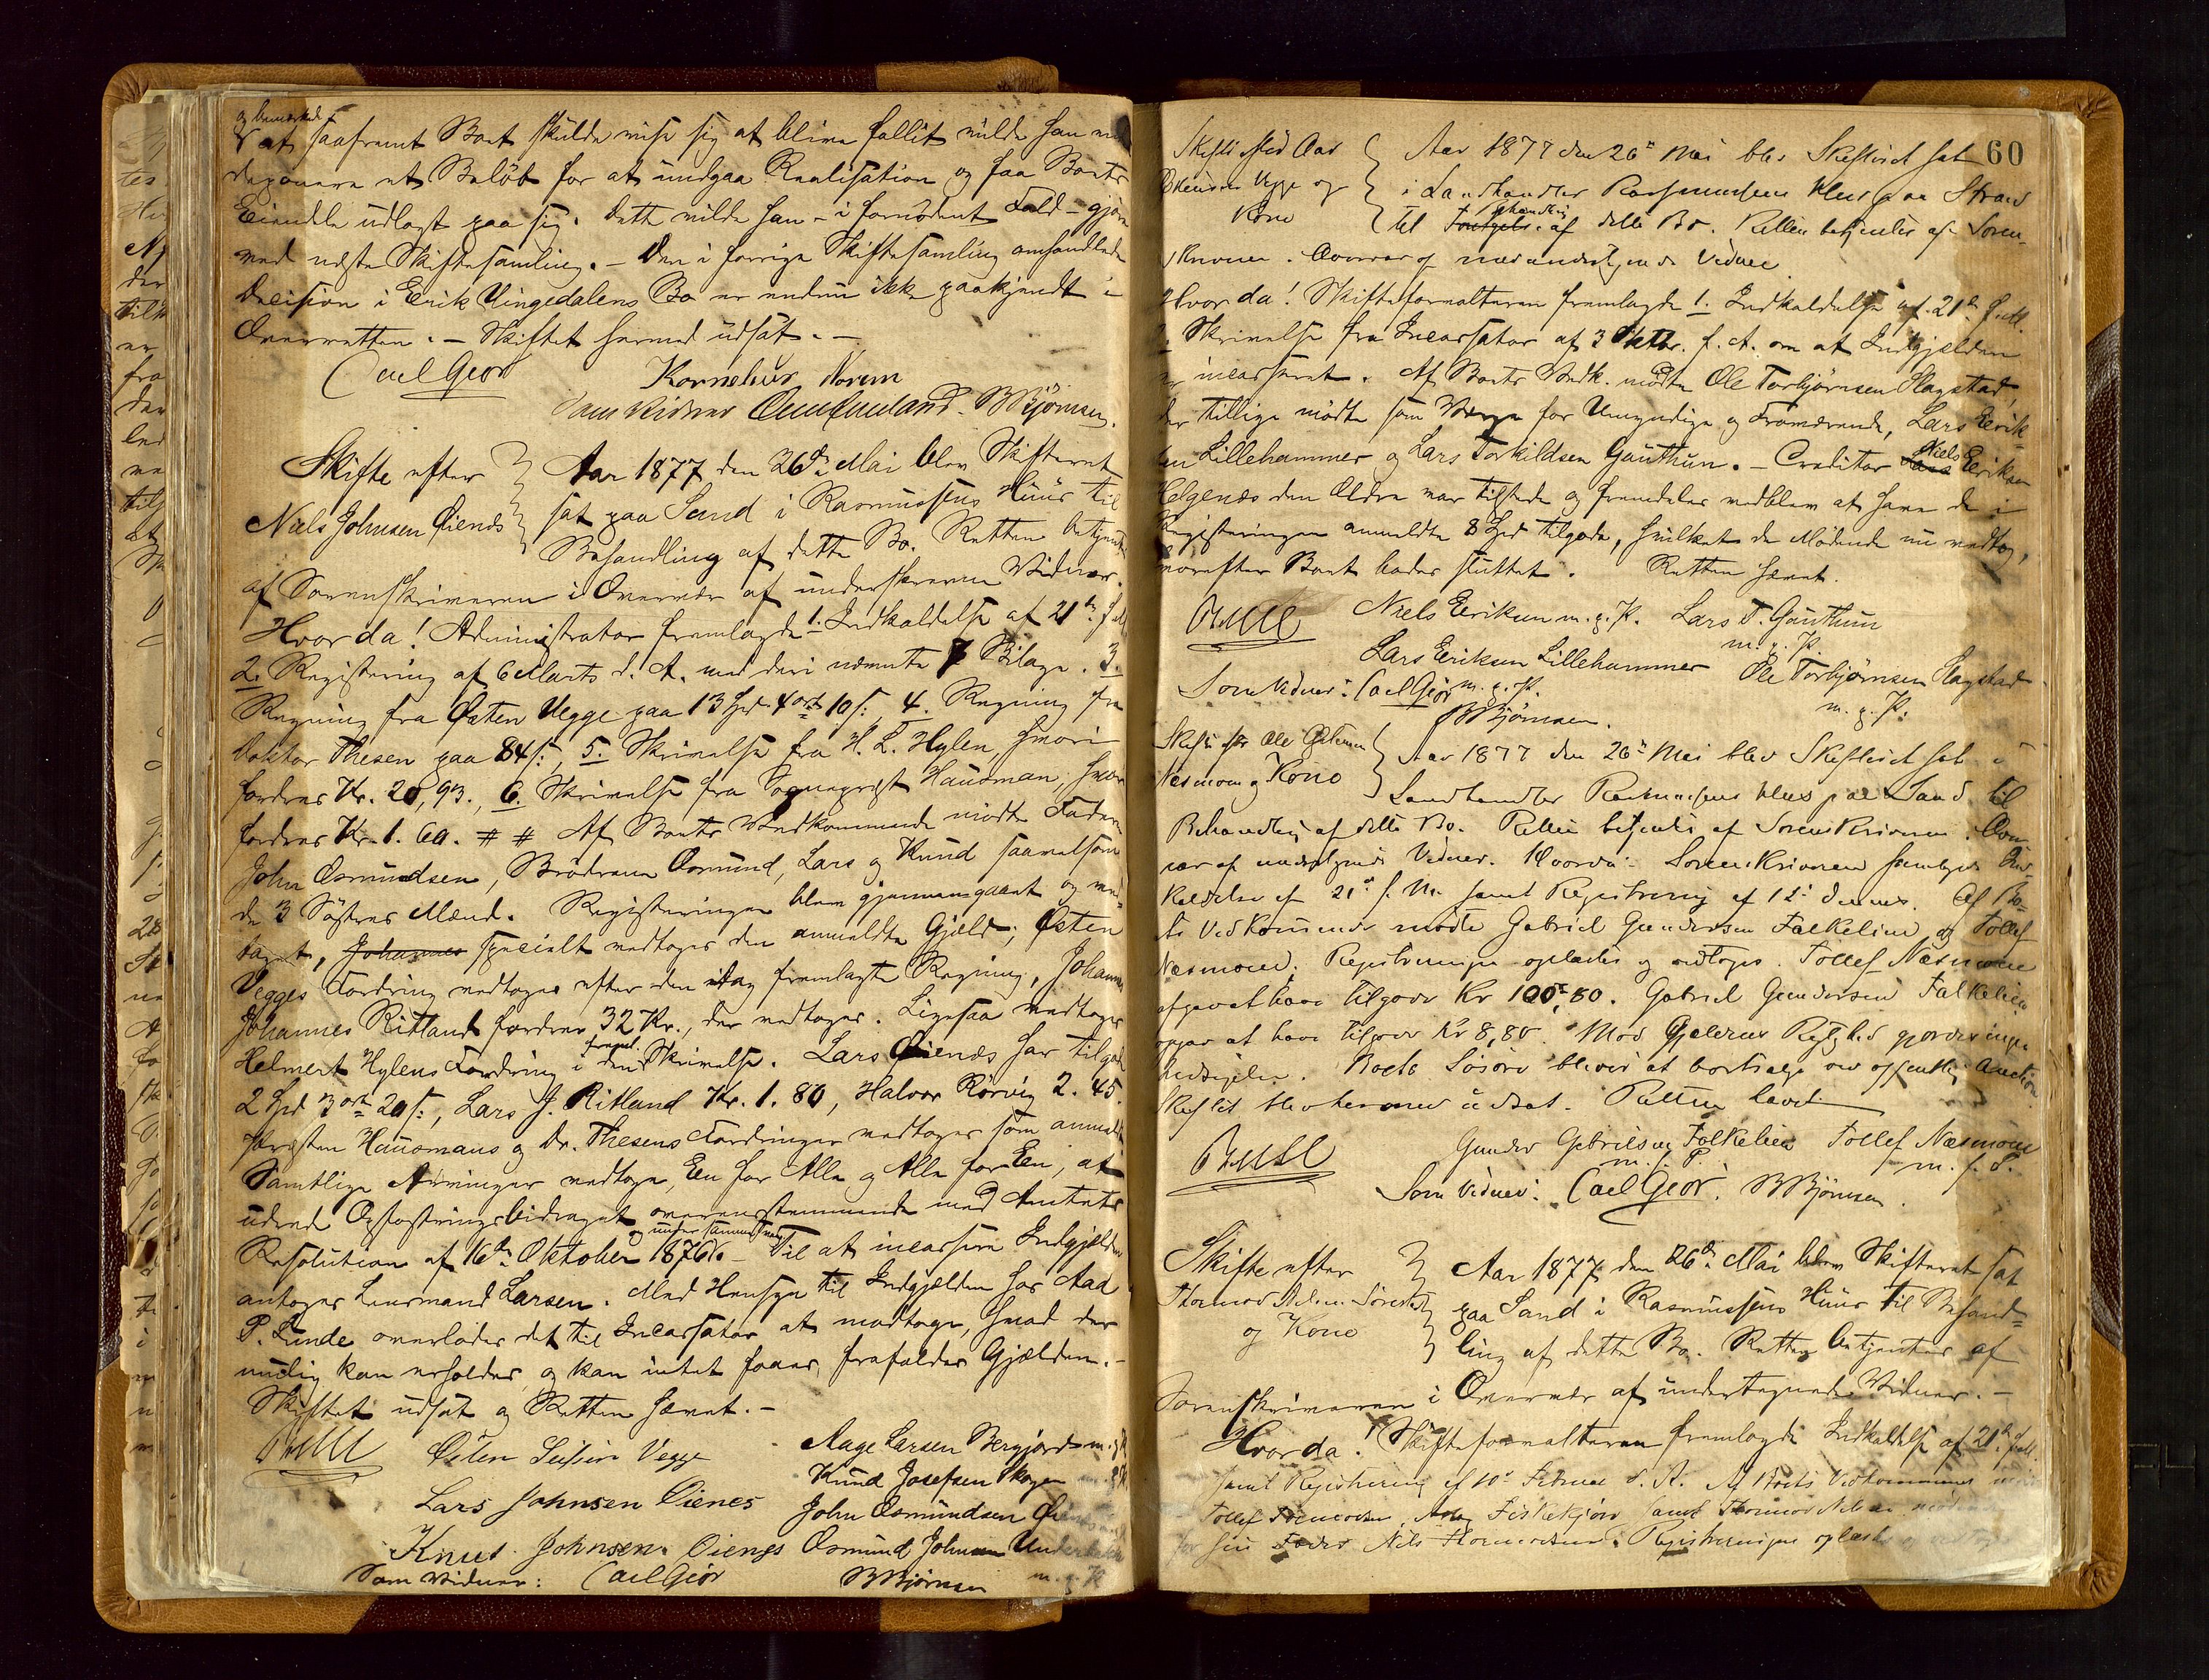 og bemærkede
at saafremt Boet skulde vise sig at blive fallit vilde han
deponere et Beløb for at undgaa Realisation og faa Boets
Eiendele udlagt paa sig. Dette vilde han - i fornødent Fald - gjøre
ved næste Skiftesamling. - Den i forrige Skiftesamling omhandlede
Decision i Eerik Vingedalens Bo er endnu ikke paakjendt i
Overretten. - Skiftet hermed udsat. -
Carl Geor Kornelius Norem
BBjörnsen.
Skifte efter
Niels Johnsen Øienes
Aar 1877 den 26de Mai blev Skifteret
sat paa Sand i Rasmussens Huus til
Behandling af dette Bo. Retten betjentes
af Sorenskriveren i Overvær af underskrevne Vidner.
Hvor da! Administrator fremlagde 1. Indkaldelse af 21de f. M.
2. Registrering af 6 Marts d. A. med deri nævnte 7 Bilage. 3.
Regning fra Østen Vegge paa 13 Spd 4 ort 10 s: 4. Regning fra
Doktor Thesen paa 84 s:, 5. Skrivelse fra H. L. Hylen, hvori
fordres Kr. 20,93., 6. Skrivelse fra Sogneprest Hausman, hvori
fordres Kr. 1. 60. # # Af Boets Vedkommende mødte Faderen
John Osmundsen, Brødrene Osmund, Lars og Knud saavelsom
de 3 Søstres Mænd. Registeringen blev gjennemgaaet og ved-
taget, Johannes specielt vedtoges den anmeldte Gjæld; Østen
Vegges Fordring vedtoges efter den idag fremlagte Regning, Johannes
Johannes Ritland fordrer 32 Kr., der vedtoges. Ligesaa vedtoges
Helmert Hylens Fordring i den freml. Skrivelse. Lars Øienes har tilgode
2 Spd 3 ort 20 s:, Lars J. Ritland Kr. 1. 80, Halvor Rörvig 2. 45.
Præsten Hausmans og Dr. Thesens Fordringer vedtoges som anmeldt
Samtlige Arvinger vedtoge, Een for Alle og Alle for Een, at
udrede Opfostringsbidraget overensstemmende med Amtets
Resolution af 16de Oktober 1876. - Til at incassere Indgjælden
antoges Lensmand Larsen. Med Hensyn til Indgjælden hos Aad
P. Lunde overlodes det til Incassator at modtage, hvad der
mulig kan erholdes, og kan intet faaes, frafaldes Gjælden. -
Skiftet udsat og Retten hævet. -
Bull Østen Vegge Aage Larsen Bergjord m. p. P.
Knud Josefsen Skogen
Lars Johnsen Øienes John Osmundsen
Knut Johnsen Øienes Osmund Johnsen
Som Vidner: Carl Geor BBjörnsen m. p. P.
60
Skifte efter
Vegge og
Kone
Aar 1877 den 26de Mai blev Skifteret sat
i Landhandler Rasmussens Huus paa
til Behandling af dette Bo. Retten betjentes af Soren-
skriveren i Overvær af nedenstaaende Vidner
Hvor da! Skifteforvalteren fremlagde 1. Indkaldelse af 21de f. M.
2. Skrivelse fra Incassator af 3 Oktbr. f. A. om at Indgjælden
er incasseret. Af Boets Vedk. mødte Ole Torbjörnsen Hagstad,
der tillige mødte som Værge for Umyndige og Fraværende, Lars Eerik-
sen Lillehammer og Lars Torkildsen Gauthun. - Creditor Lars Niels Eeriksen
Helgenæs den Ældre var tilstede og fremdeles vedblev at have de i
Registeringen anmeldte 8 Spd tilgode, hvilket de Mødende nu vedtog,
hvorefter Boet blev sluttet. Retten hævet.
Bull Niels Eeriksen m. p. P. Lars T. Gauthun
m. p. P.
Lars Eeriksen Lillehammer Ole Torbjörnsen Hagstad
Som Vidner: Carl Geor m. p. P. m. p. P.
BBjörnsen.
Skifte efter Ole
Næsmoen og Kone
Aar 1877 den 26de Mai blev Skifteret sat i
Landhandler Rasmussens Huus paa Sand til
Behandling af dette Bo. Retten betjentes af Sorenskriveren i Over-
vær af undertegnede Vidner. Hvorda: Sorenskriveren fremlagde Ind-
kaldelse af 21de f. M. samt Registrering af 12te dennes. Af Bo-
ets Vedkommende mødte Gabriel Gundersen Falkelien og Tollef
Næsmoen. Registreringen oplæstes og vedtoges. Tollef Næsmoen
opgav at have tilgode Kr 100,80. Gabriel Gundersen Falkelien
opgav at have tilgode Kr 8,80. Mod Gjældens Rigtighed gjordes ingen
Indsigelse. Boets Løsøre bliver at bortsælge ved offentlig Auction.
Skiftet blev hermed udsat. Retten hævet
Bull Gunder Gabrielsen Falkelien Tollef Næsmoen
m. p. P. m. p. P.
Som Vidner: Carl Geor. BBjörnsen.
Skifte efter
Thormod
og Kone
Aar 1877 den 26de Mai blev Skifteret sat
paa Sand i Rasmussens Huus til Behand-
ling af dette Bo. Retten betjentes af
Sorenskriveren i Overvær af undertegnede Vidner. -
Hvor da! Skifteforvalteren fremlagde Indkaldelse af 21de f. M.
samt Registrering af 10de Februar d. A. Af Boets Vedkommende
Tollef Fiskekjön samt Thormod Nilsen
for sin Fader Nils Thormodsen. Registreringen oplæstes og